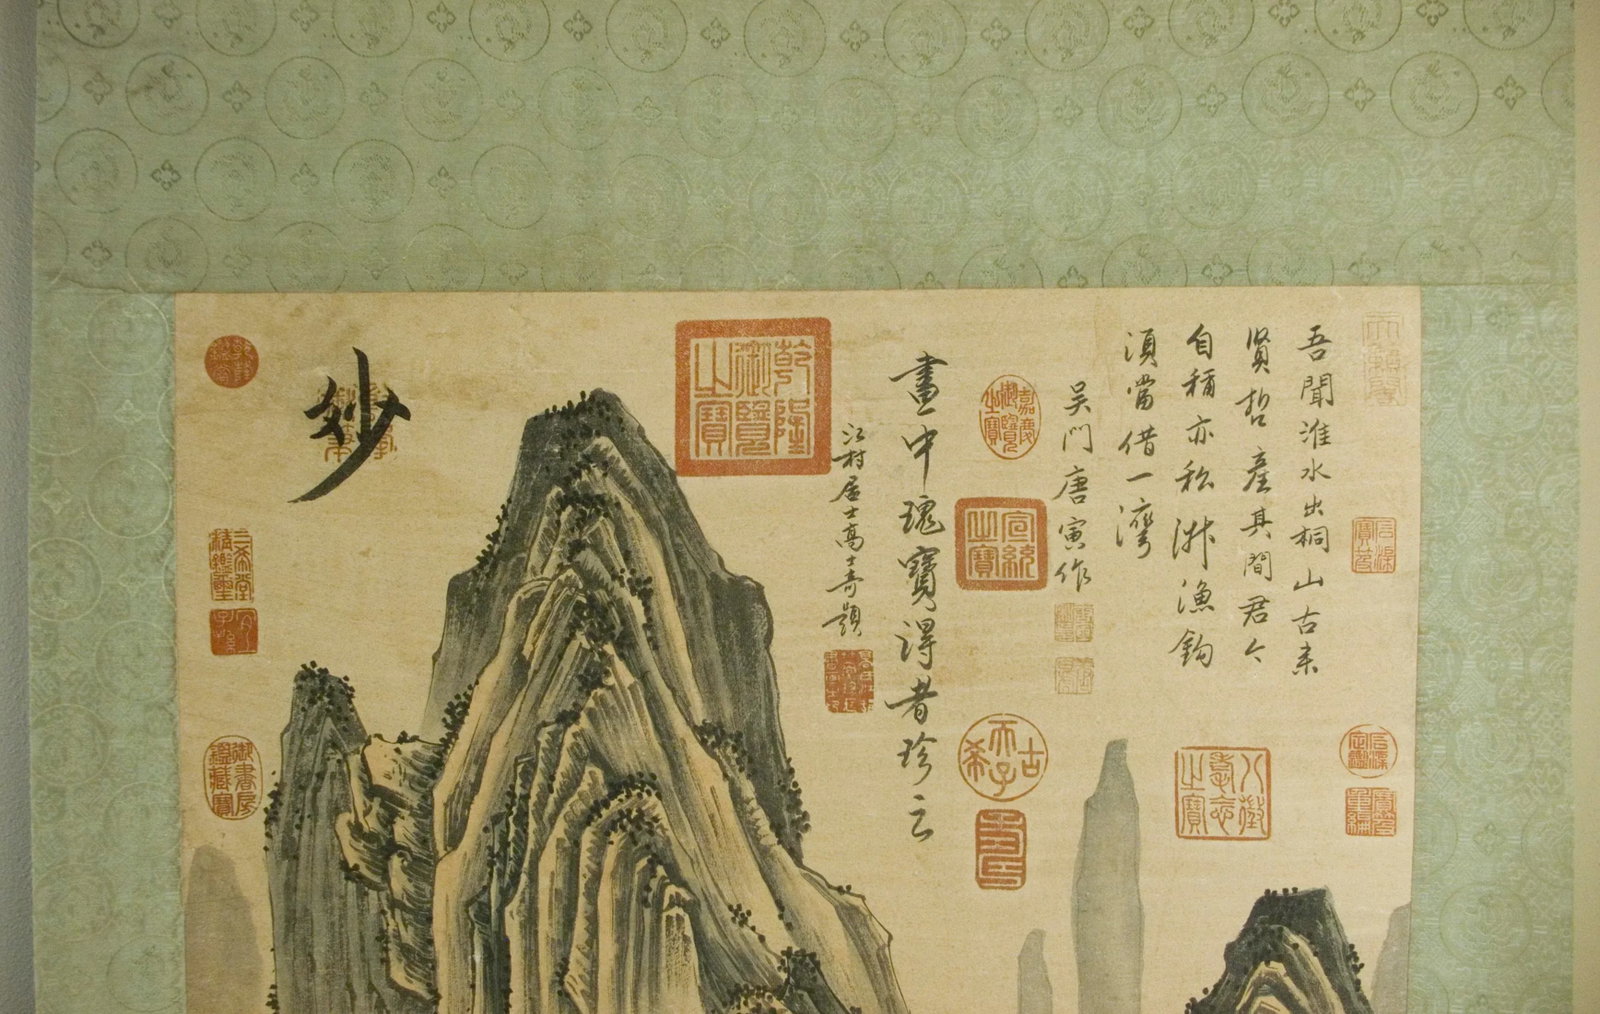 吾聞淮水出桐山古來
賢哲產其間君今
自稱亦私淋漁鈎
須當借一灣
吳門唐寅作
畫中瑰寶得者珍云
江村居士高士奇題
妙
嘉慶御覽之寶
宣統之寶
乾隆御覽之寶
古希天子
八徵耄念之寶
三希堂精鑑璽
御書房鑑藏寶